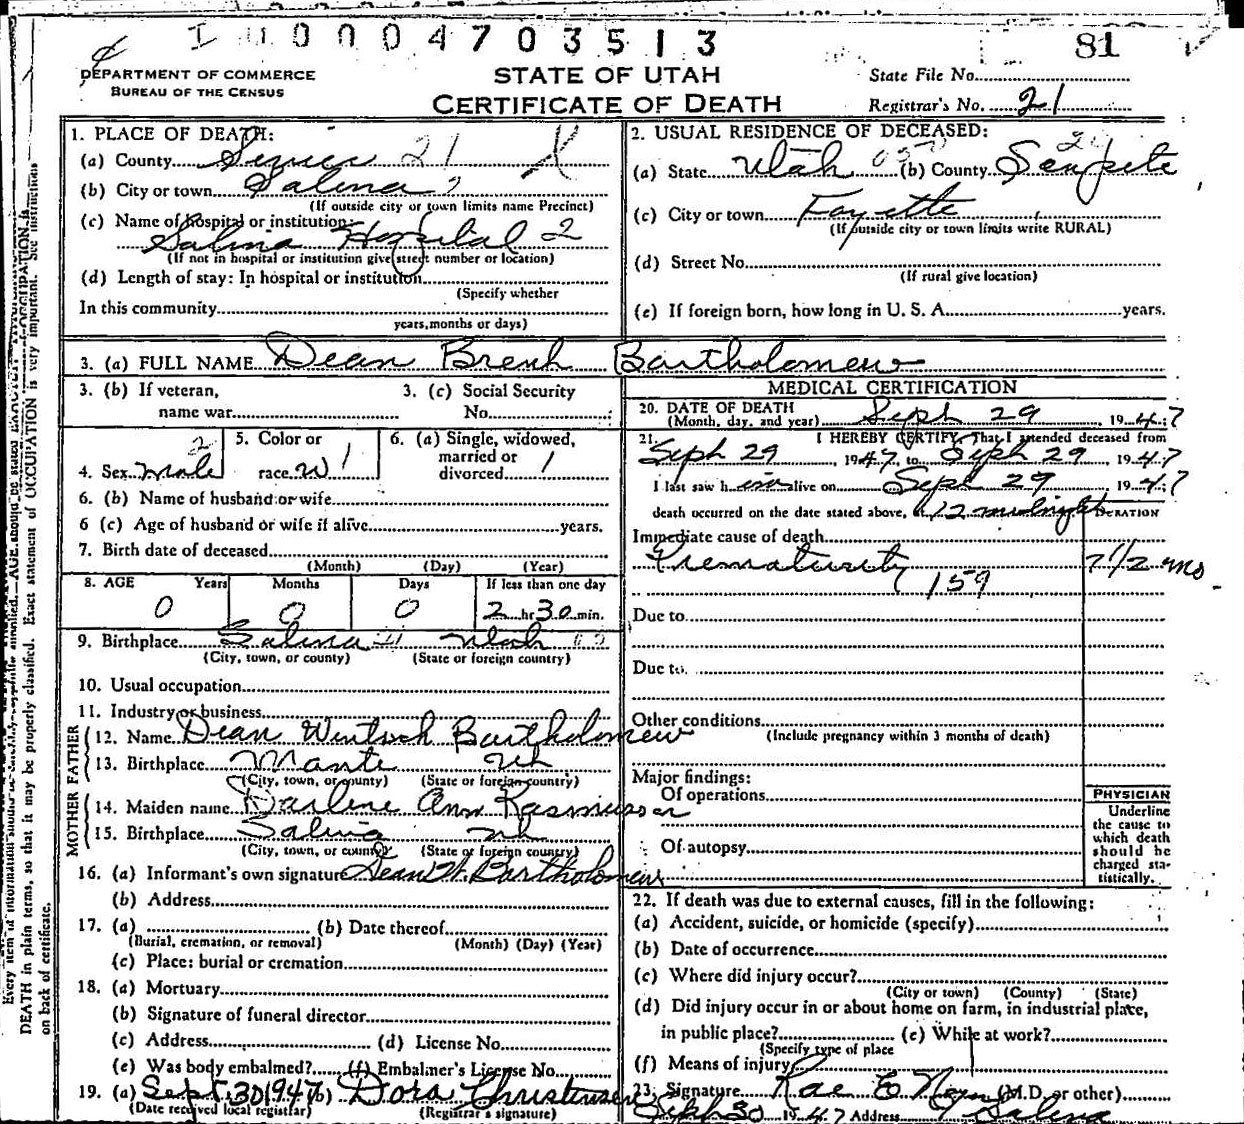 I 0 0 0 0 4 7 0 3 5 1 3
81
DEPARTMENT OF COMMERCE
BUREAU OF THE CENSUS
STATE OF UTAH
CERTIFICATE OF DEATH
State File No.
Registrar's No. 21
1. PLACE OF DEATH:
(a) County Sevier 21
(b) City or town Salina
(If outside city or town limits name Precinct)
(c) Name of hospital or institution:
Salina Hospital 2
(If not in hospital or institution give street number or location)
(d) Length of stay: In hospital or institution
(Specify whether
In this community
years, months or days)
2. USUAL RESIDENCE OF DECEASED:
(a) State Utah (b) County Sanpete
(c) City or town Fayette
(If outside city or town limits write RURAL)
(d) Street No.
(If rural give location)
(e) If foreign born, how long in U. S. A. years.
3. (a) FULL NAME Dean Brent Bartholomew
3. (b) If veteran,
name war
3. (c) Social Security
No.
4. Sex Male 2
5. Color or
race W 1
6. (a) Single, widowed,
married or
divorced 1
6. (b) Name of husband or wife
6 (c) Age of husband or wife if alive years.
7. Birth date of deceased
(Month) (Day) (Year)
8. AGE Years Months Days If less than one day
0 0 0 2 hr 30 min.
9. Birthplace Salina Utah
(City, town, or county) (State or foreign country)
10. Usual occupation
11. Industry or business
FATHER
12. Name Dean Bartholomew
13. Birthplace Manti Ut
(City, town, or county) (State or foreign country)
MOTHER
14. Maiden name Darlene Ann Rasmussen
15. Birthplace Salina Ut
(City, town, or county) (State or foreign country)
16. (a) Informant's own signature Dean W. Bartholomew
(b) Address
17. (a) (b) Date thereof
(Burial, cremation, or removal) (Month) (Day) (Year)
(c) Place: burial or cremation
18. (a) Mortuary
(b) Signature of funeral director
(c) Address (d) License No.
(e) Was body embalmed? (f) Embalmer's License No.
19. (a) Sept. 30 1947 (b) Dora Christensen
(Date received local registrar) (Registrar's signature)
MEDICAL CERTIFICATION
20. DATE OF DEATH
(Month, day, and year) Sept 29, 1947
21. I HEREBY CERTIFY, That I attended deceased from
Sept 29, 1947, to Sept 29, 1947
I last saw him alive on Sept 29 1947
death occurred on the date stated above, at 12 midnight DURATION
Immediate cause of death
Prematurity 7 1/2 mo
159
Due to
Due to
Other conditions
(Include pregnancy within 3 months of death)
Major findings:
Of operations
Of autopsy
PHYSICIAN
Underline
the cause to
which death
should be
charged sta-
tistically.
22. If death was due to external causes, fill in the following:
(a) Accident, suicide, or homicide (specify)
(b) Date of occurrence
(c) Where did injury occur?
(City or town) (County) (State)
(d) Did injury occur in or about home on farm, in industrial place,
in public place? (e) While at work?
(Specify type of place
(f) Means of injury
23. Signature Rae E Noyes (M.D. or other)
Sept 30 1947 Address Salina
DEATH in plain terms, so that it may be properly classified. Exact statement of OCCUPATION is very important. See instructions
on back of certificate.